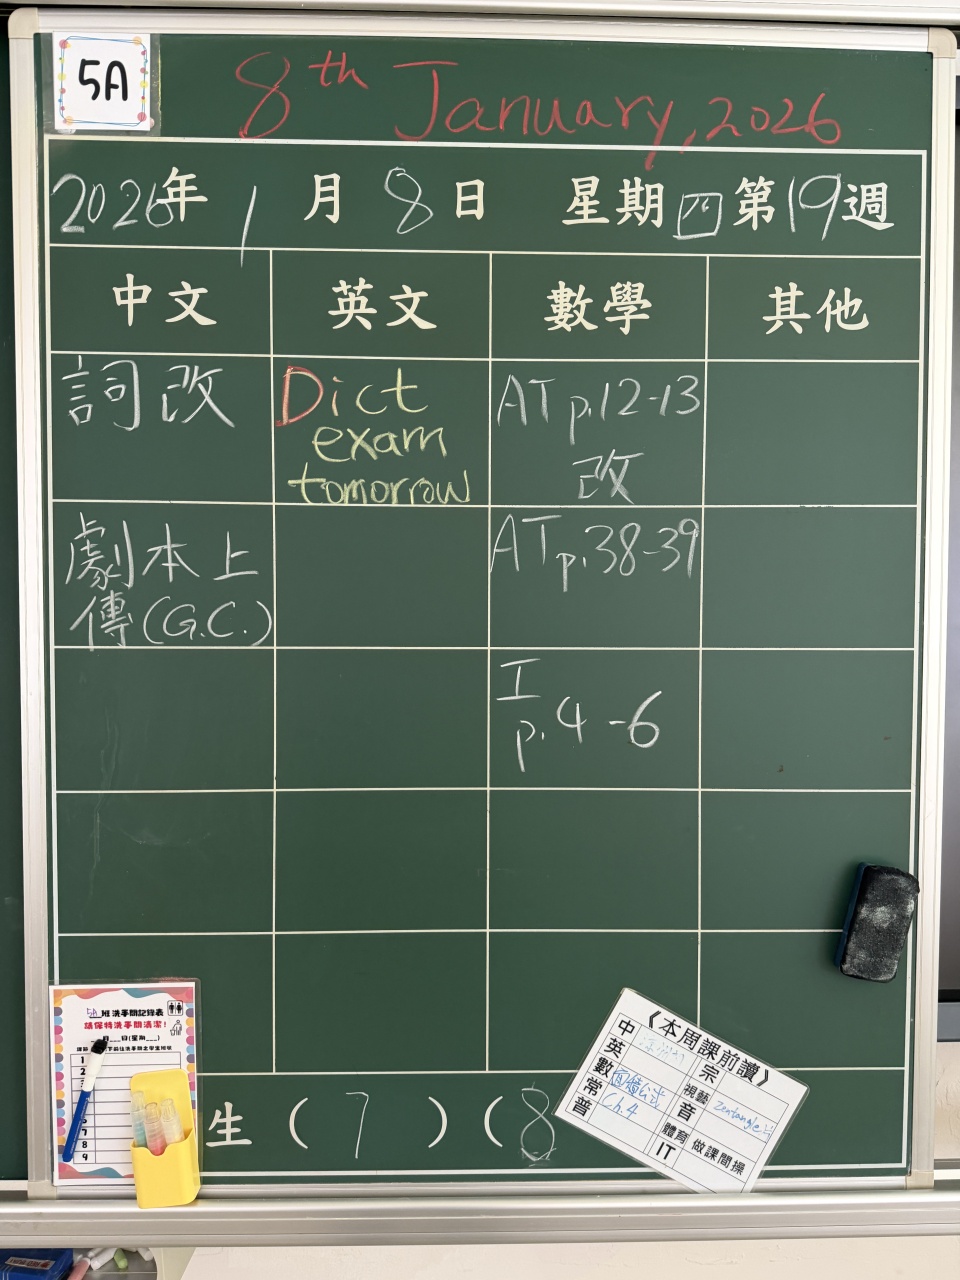 5A
8th January, 2026
2026年 1月 8日 星期四 第19週
中文 英文 數學 其他
詞改
Dict
exam
tomorrow
AT p.12-13
改
劇本上
傳(G.C.)
AT p.38-39
I
p.4-6
5A 班洗手間記錄表
請保持洗手間清潔!
月 日(星期 )
1
2
7
8
9
生 (7) (8
《本周課前讀》
中
英
數
常 Ch.4
普
宗
視藝 Zentangle
音
體育 做課間操
IT